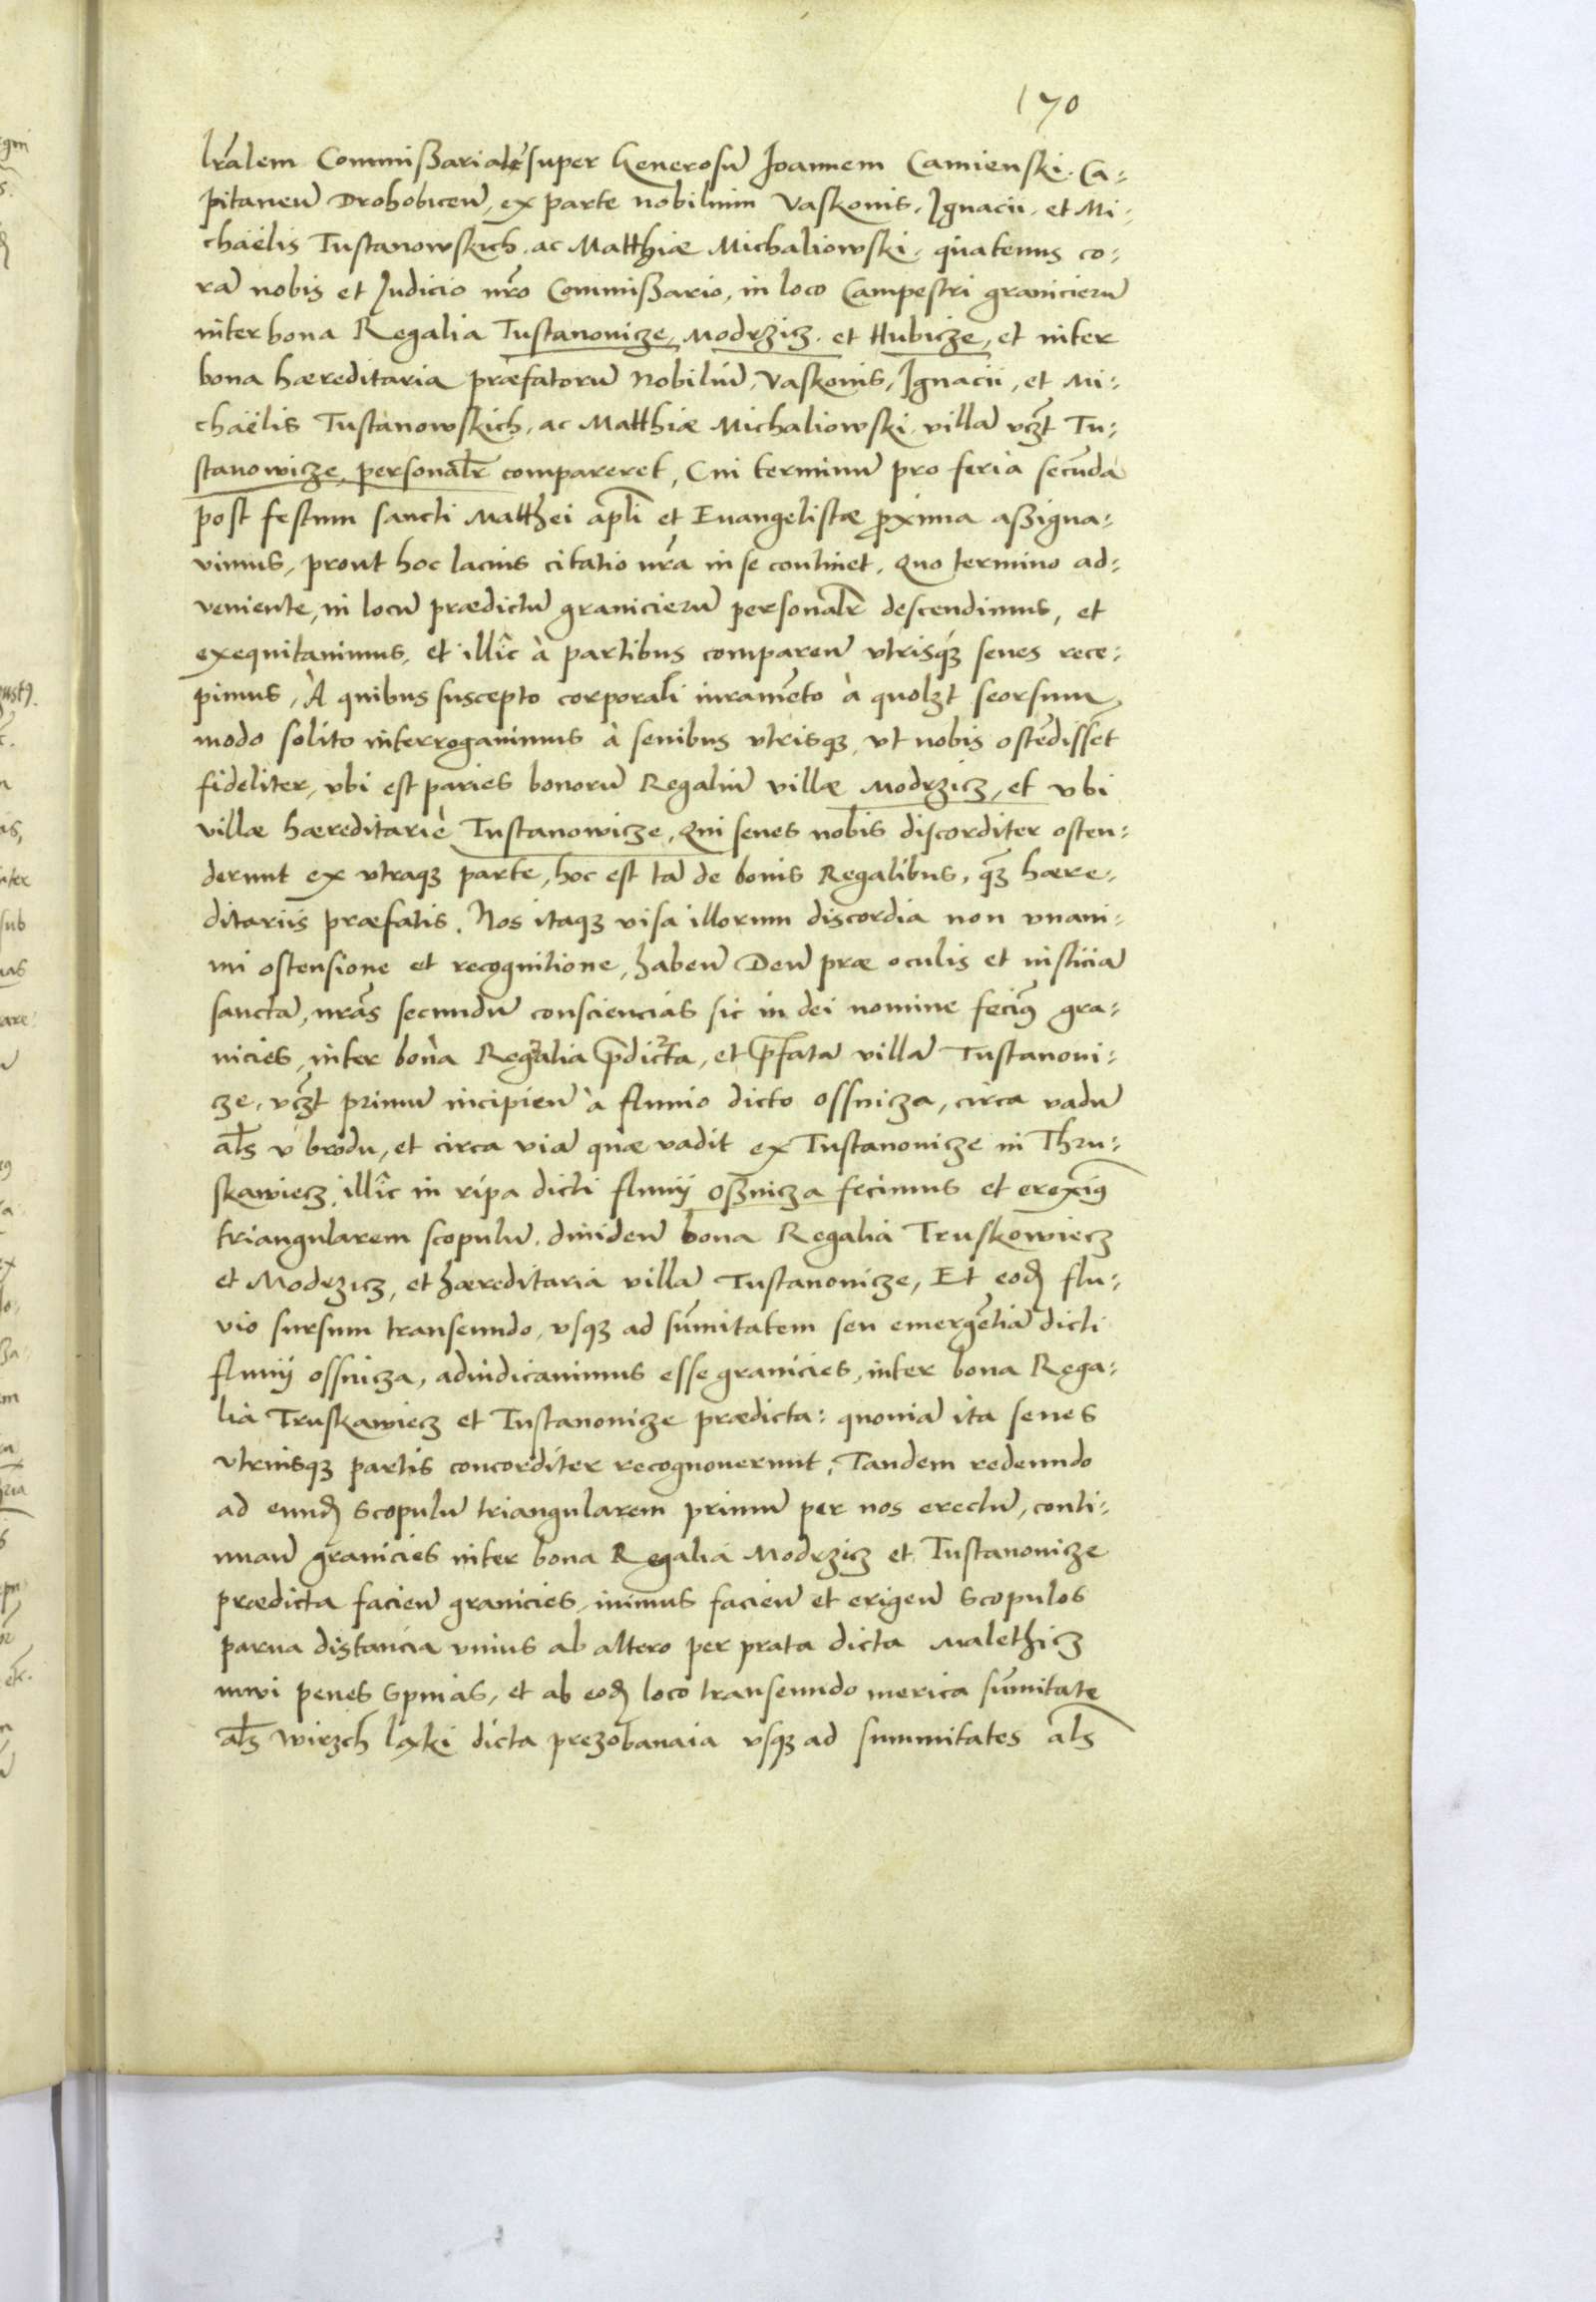 170
lr̃alem Commißarialẽ super Generosũ Joannem Camienski. Ca:
pitaneũ Drohobiceñ, ex parte nobilium Vaskonis, Ignacii, et Mi:
chaëlis Tustanowskich, ac Matthiæ Michaliowski, quatenus co:
rã nobis et Judicio nr̃o Commißario, in loco Campestri granicierũ
inter bona Regalia Tustanouicze, Modrzicz, et Hubicze, et inter
bona hæreditaria præfatorũ Nobiliũ, Vaskonis, Ignacii, et Mi:
chaëlis Tustanowskich, ac Matthiæ Michaliowski, villã vcz̃t Tu:
stanowicze, personalr̃ compareret, Cui terminũ pro feria secũda
post festum sancti Matthei apl̃i et Euangelistæ p̃xima aßigna:
uimus, prout hoc lacius citatio nr̃a in se continet. Quo termino ad:
veniente, in locũ prædictũ granicierũ personalr̃ descendimus, et
exequitauimus, et illîc à partibus compareñ vtrisq́ꝫ senes rece:
pimus, À quibus suscepto corporali iuramẽto à quolzt seorsum
modo solito interrogauimus à senibus vtrisqꝫ, vt nobis ostẽdissẽt
fideliter, vbi est paries bonorũ Regaliũ villæ Modrzicz, et vbi
villæ hæreditariè Tustanowicze, Qui senes nobis discorditer osten:
derunt ex vtraqꝫ parte, hoc est tã de bonis Regalibus, q̃ꝫ hære:
ditariis præfatis. Nos itaqꝫ visa illorum discordia non vnani:
mi ostensione et recognitione, habeñ Deũ præ oculis et iusticiã
sanctã, nr̃as secundũ consciencias sic in dei nomine fecimꝰ gra:
nicies, inter bona Regalia p̃dicta, et p̃fatã villã Tustanoui:
cze, vcz̃t primũ incipieñ à fluuio dicto Ossnicza, circa vadũ
al̃s v brodu, et circa viã quæ vadit ex Tustanouicze in Thru:
skawiecz, illîc in ripa dicti fluuij Oßnicza fecimus et ereximꝰ
triangularem scopulũ, diuideñ bona Regalia Truskowiecz
et Modrzicz, et hæreditaria villã Tustanouicze, Et eod̃ flu:
vio sursum transeundo, vsqꝫ ad sum̃itatem seu emergẽtiã dicti
fluuij Ossnicza, adiudicauimus esse granicies, inter bona Rega:
lia Truskawiecz et Tustanouicze prædicta: quoniã ita senes
vtriusqꝫ partis concorditer recognouerunt. Tandem redeundo
ad eund̃ Scopulũ triangularem primũ per nos erectũ, conti:
nuañ granicies inter bona Regalia Modrzicz et Tustanouicze
prædicta facieñ granicies, iuimus facieñ et erigeñ Scopulos
parua distancia vnius ab altero per prata dicta Malethicz
nwi penes Spinas, et ab eod̃ loco transeundo merica sum̃itate
al̃s wirzch laxki dicta prezobanaia vsqꝫ ad summitates al̃s